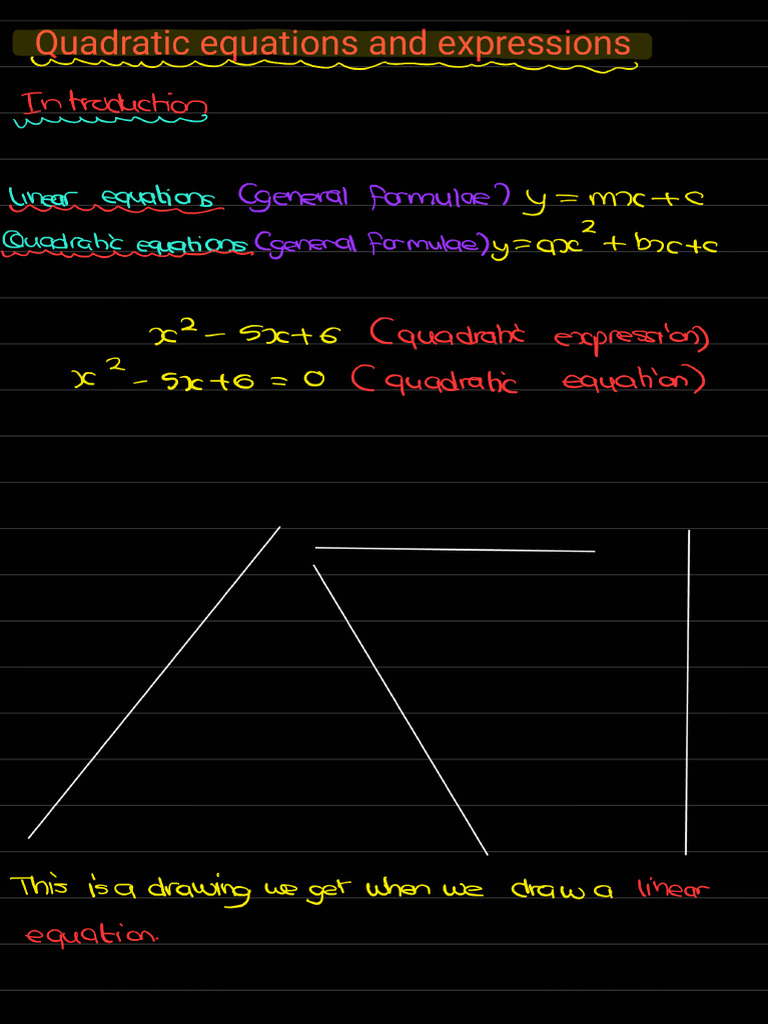 Quadratic equations and expressions
Introduction
linear equations (general formulae) y = mx + c
Quadratic equations (general formulae) y = ax² + bx + c
x² - 5x + 6 (quadratic expression)
x² - 5x + 6 = 0 (quadratic equation)
This is a drawing we get when we draw a linear
equation.